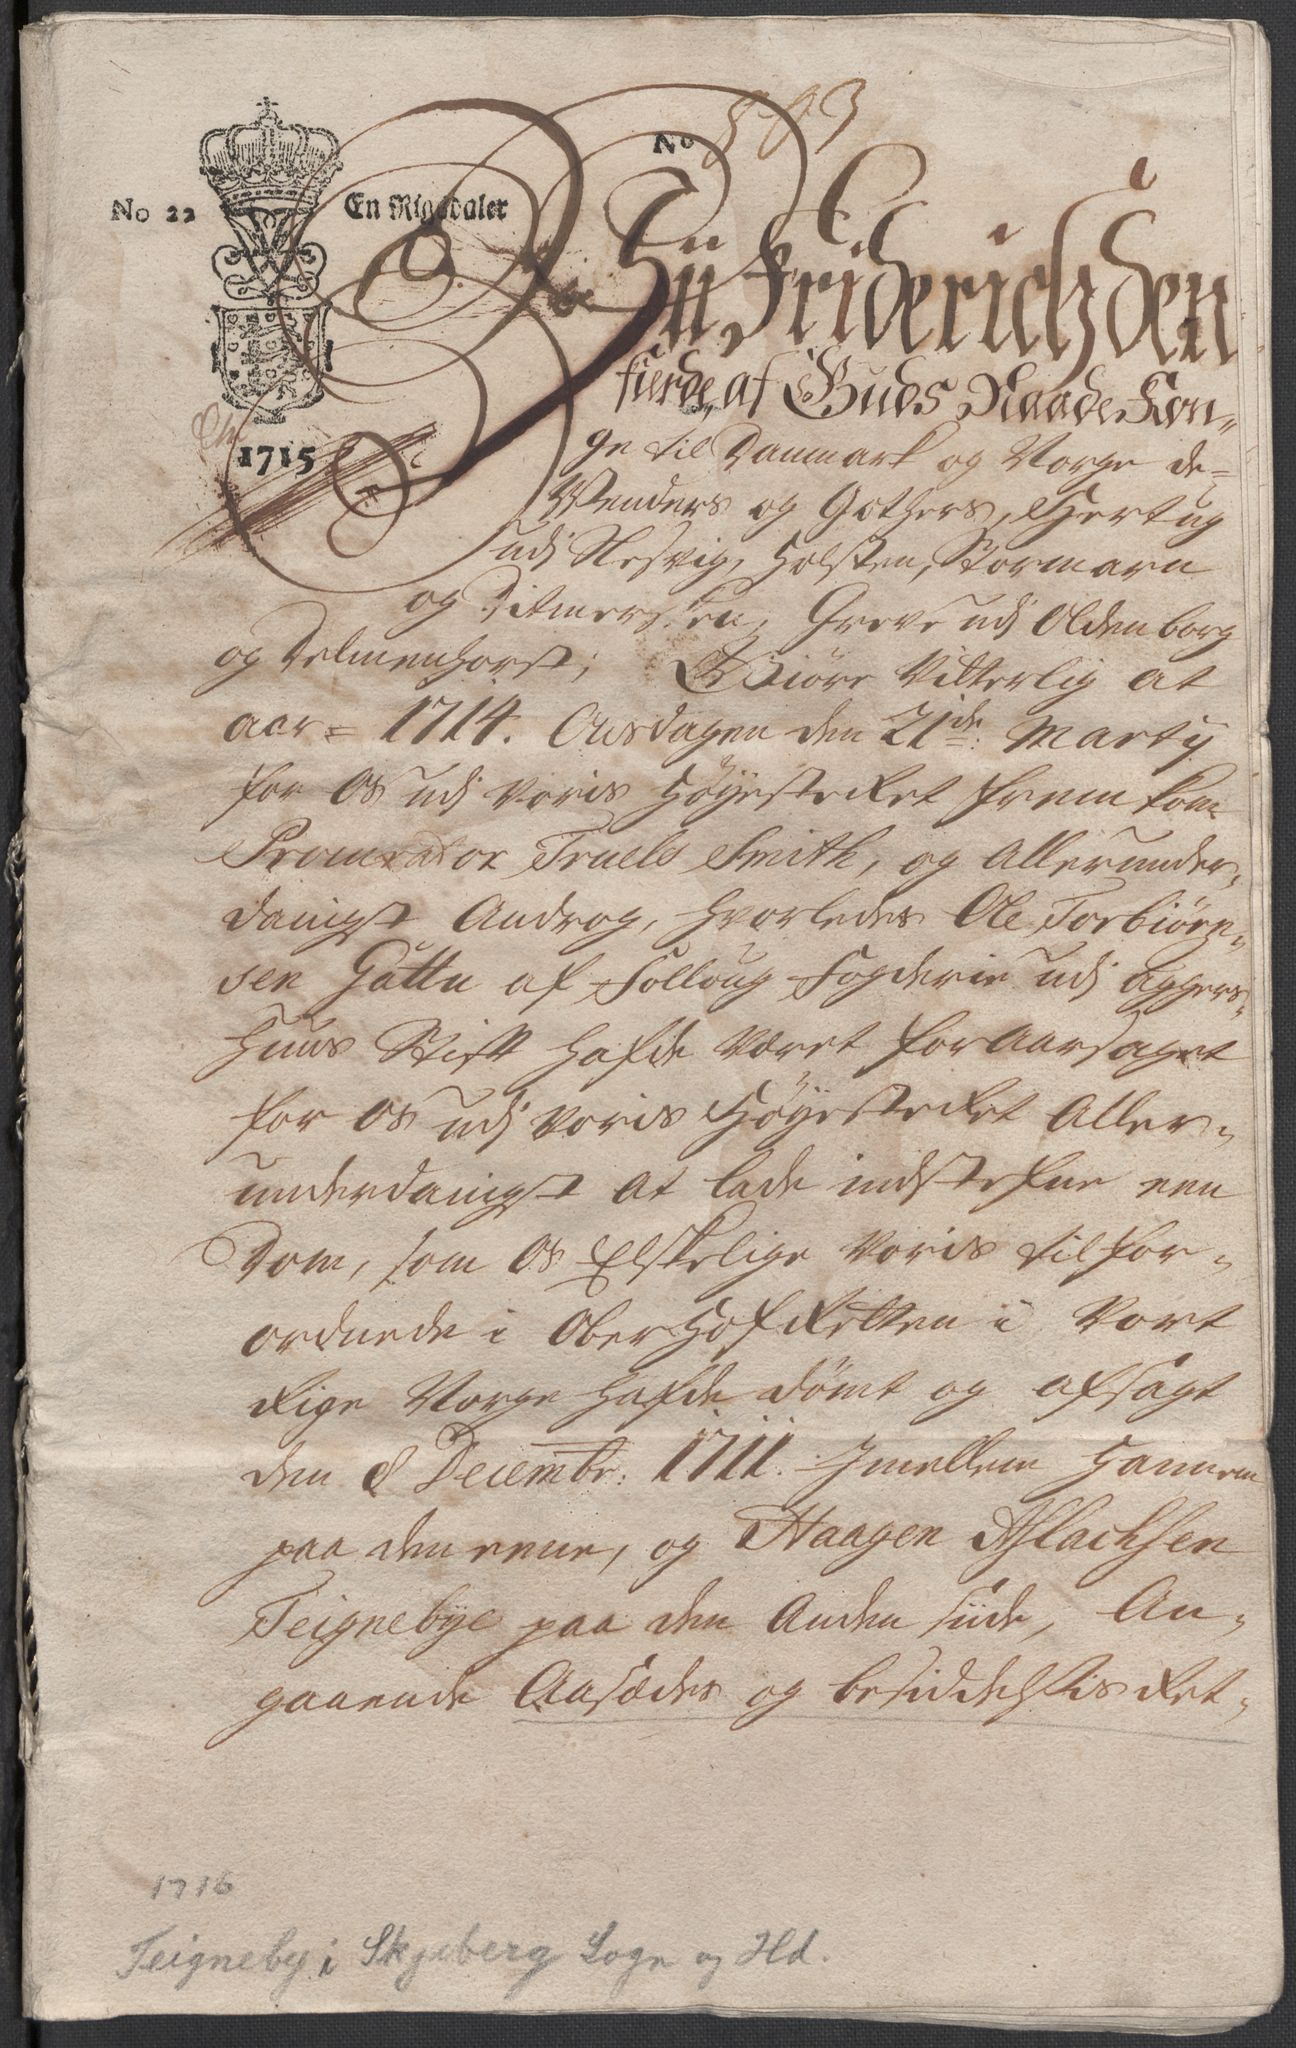 No 22
En Rigsdaler
No 893
1715
Wii Friderich den
fierde, af Guds Naade Kon-
ge til Danmark og Norge de-
Wenders og Gothers, Hertug
udj Slesvig, Holsten, Stormarn
og Ditmersken, Greve udj Oldenborg
og Delmenhorst; Giöre Vitterlig at
aar = 1714. Onsdagen den 21de Martij
for Os udj voris Höyesteret frem kom
Procurator Truels Smith, og Allerunder-
danigst Androg, hvorledes Ole Torbiörn-
sen Gattu af Folloug Fogderie udj Aggers-
huus Stift hafde været foraarsaget
for Os udj voris Höyesteret Aller-
underdanigst at lade indstefne een
Dom, som Os Elskelige Voris tilfor-
ordnede i Ober Hof Retten i Vort
Rige Norge hafde dömt og afsagt
den 8 Decembr: 1711. Imellem Hannem
paa den eene, og Haagen Aslachsen
Teignebye paa den Anden side, An-
gaaende Aasædes og besiddelsis Ret-
1716
Teigneby i Skjeberg Sogn og Hd.